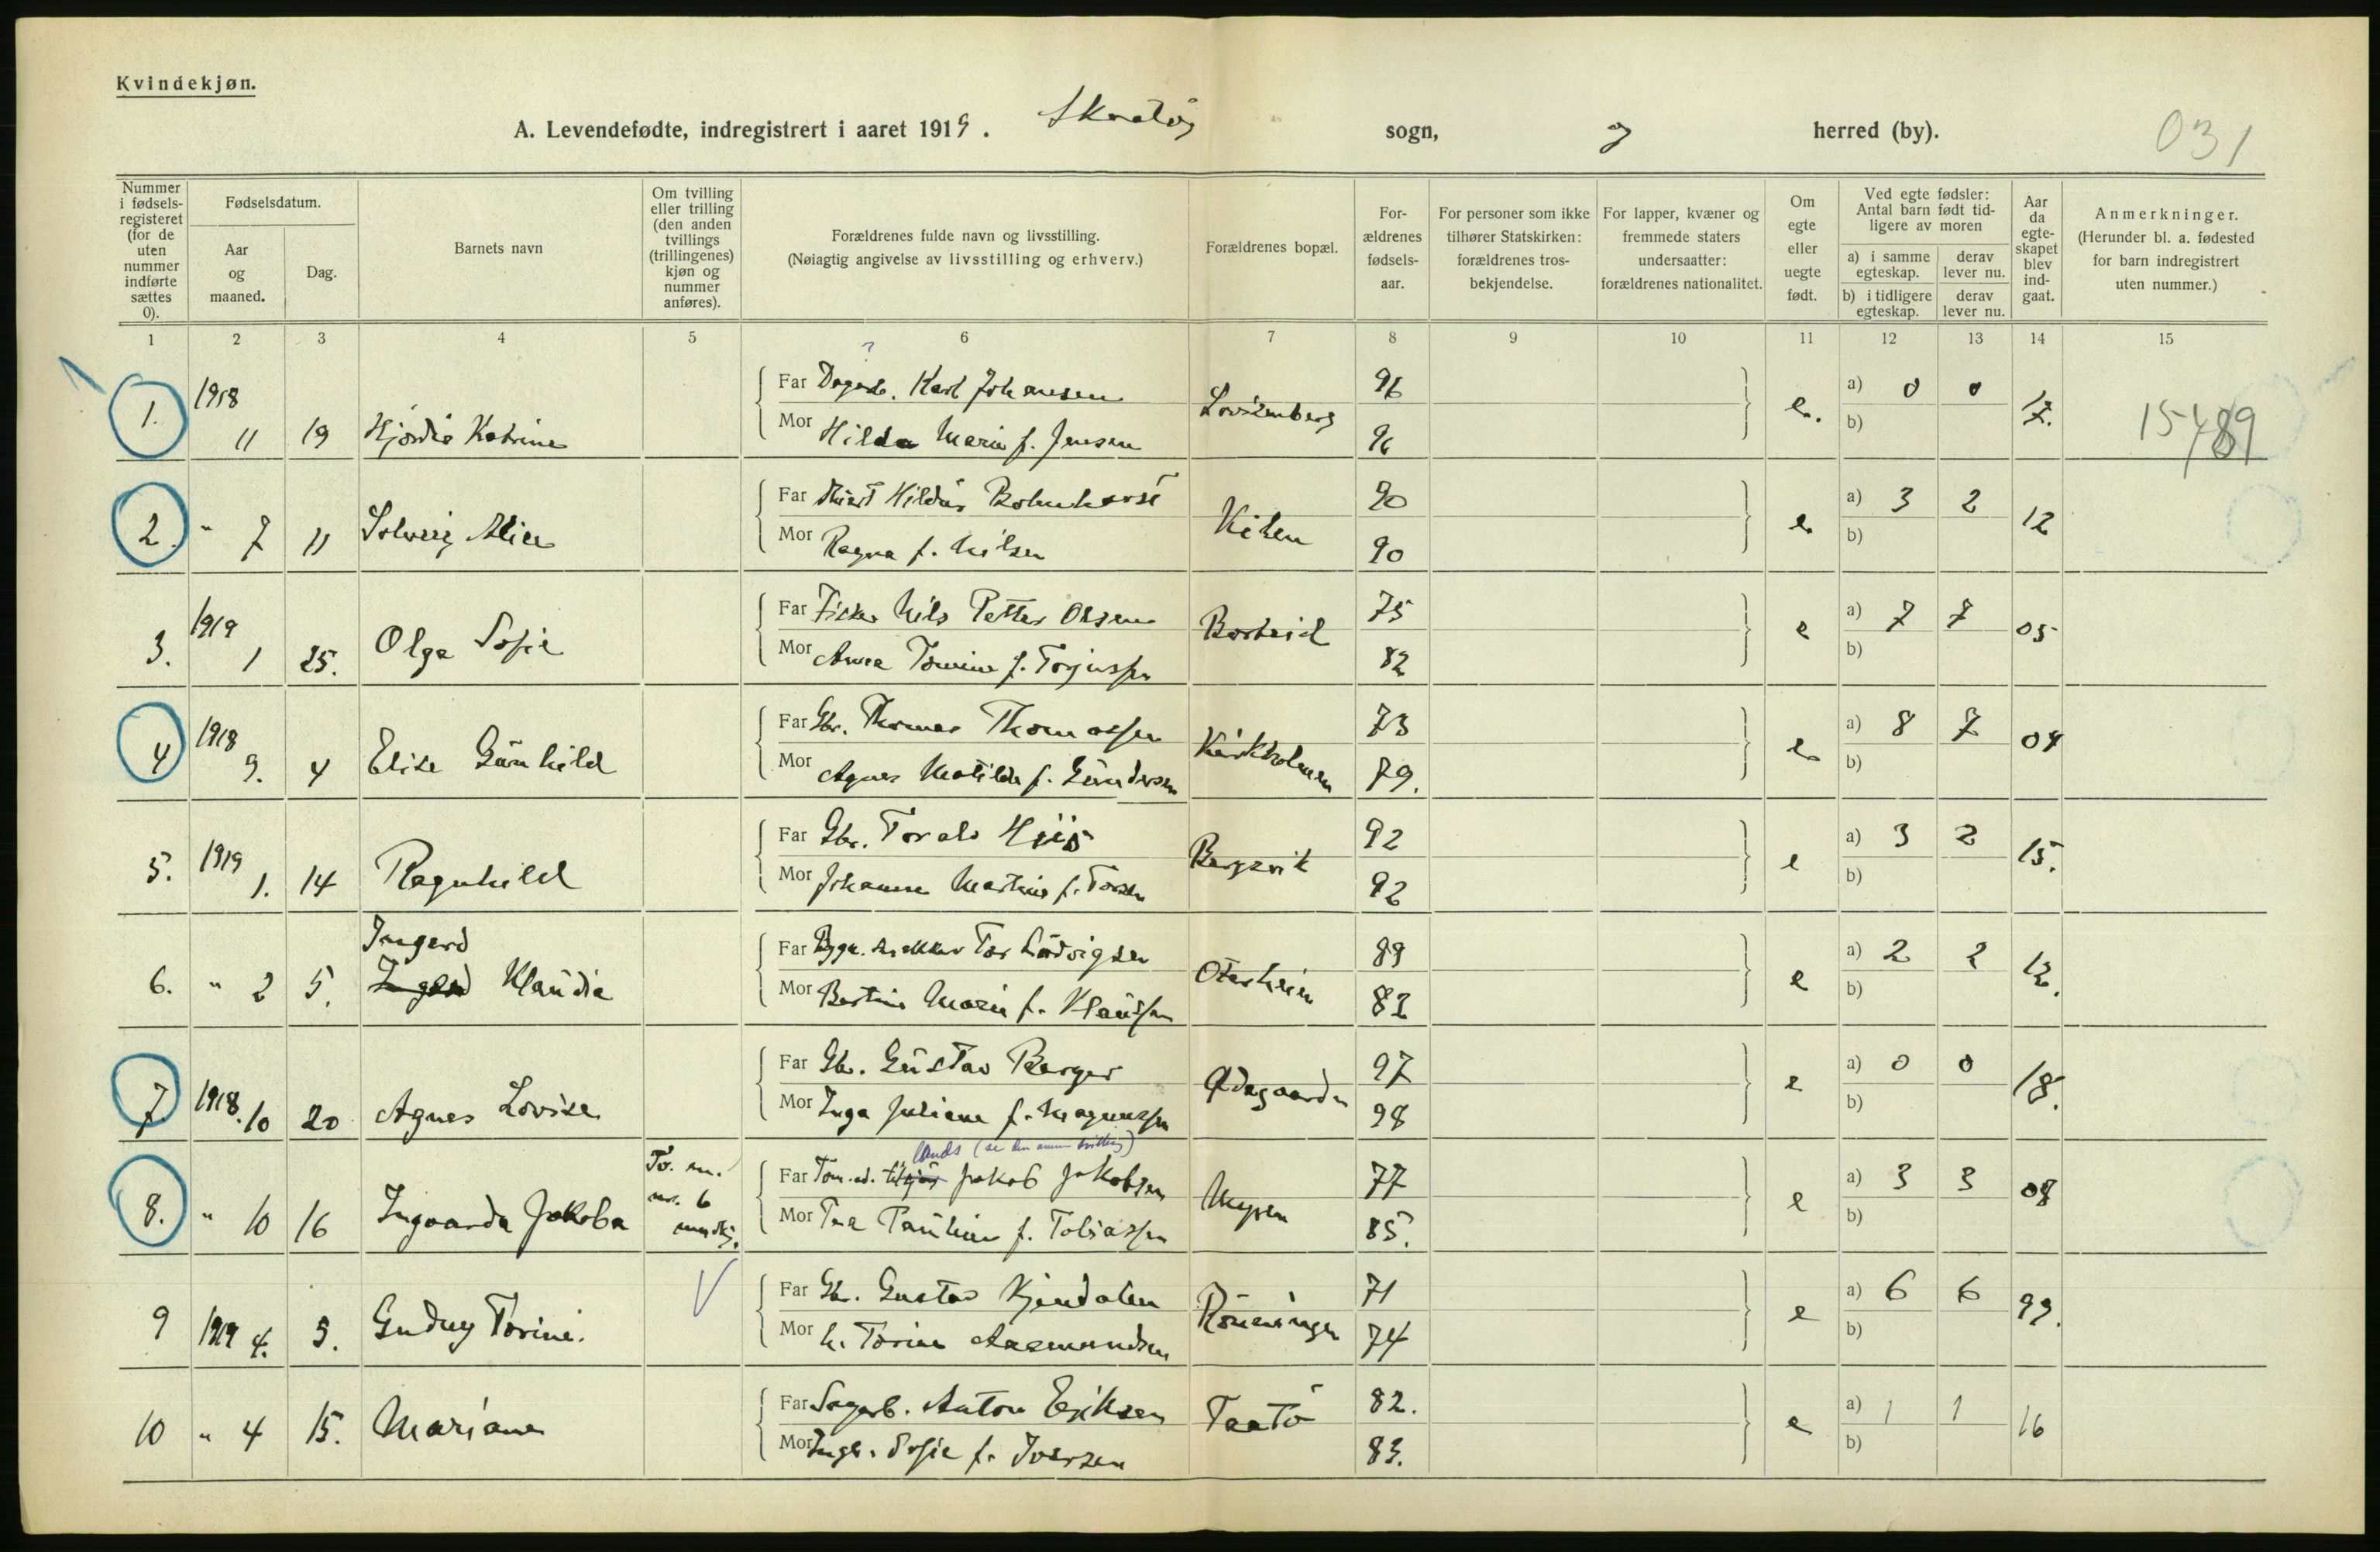 Kvindekjøn.
A. Levendefødte, indregistrert i aaret 1919. Skaatøy sogn, og herred (by). 031
Nummer i fødselsregisteret (for de uten nummer indførte sættes 0).
Fødselsdatum.
Aar og maaned.
Dag.
Barnets navn
Om tvilling eller trilling (den anden tvillings (trillingenes) kjøn og nummer anføres).
Forældrenes fulde navn og livsstilling.
(Nøiagtig angivelse av livsstilling og erhverv.)
Forældrenes bopæl.
Forældrenes fødselsaar.
For personer som ikke tilhører Statskirken: forældrenes trosbekjendelse.
For lapper, kvæner og fremmede staters undersaatter: forældrenes nationalitet.
Om egte eller uegte født.
Ved egte fødsler: Antal barn født tidligere av moren
a) i samme egteskap. derav lever nu.
b) i tidligere egteskap. derav lever nu.
Aar da egteskapet blev indgaat.
Anmerkninger.
(Herunder bl. a. fødested for barn indregistrert uten nummer.)
1 2 3 4 5 6 7 8 9 10 11 12 13 14 15
1. 1918 11 19 Hjørdis Katrine Far Dagarb. Karl Johansen Lovisenberg 96 e. a) 0 0 17. 15489
Mor Hilda Marie f. Jensen 96 b)
2. " 7 11 Solveig Alice Far Hildur Bomhorst Kilen 90 e a) 3 2 12
Mor Ragna f. Nilsen 90 b)
3. 1919 1 25. Olga Sofie Far Fisker Nils Petter Olsen Borteid 75 e a) 7 7 05
Mor Anna Tomine f. Torjussen 82 b)
4 1918 9. 4 Elise Gunhild Far Gbr. Thomas Thomassen Kirkholmen 73 e a) 8 7 04
Mor Agnes Matilde f. Gundersen 79. b)
5. 1919 1. 14 Ragnhild Far Gbr. Torals Bergsvik 92 e a) 3 2 15.
Mor Johanne Martine f. Torsen 92 b)
Ingerd
6. " 2 5. Klaudia Far Bygn. snekker Tor Ludvigsen Oterheien 89 e a) 2 2 12.
Mor Bertine Marie f. Klausen 82 b)
7 1918. 10 20 Agnes Lovise Far Gbr. Gustav Berger Ødegaarden 97 e a) 0 0 18.
Mor Inga Juliane f. Magnussen 98 b)
lands (se den annen tvilling)
8. " 10 16 Ingvarda Jakoba Tv. m. nr. 6 mandkj. Far Tøm. ad. Jakob Jakobsen Myren 77 e a) 3 3 08
Mor Tea Pauline f. Tobiassen 85. b)
9 1919 4. 5. Gudny Torine. Far Gbr. Gustav Kjendalen Rønningen 71 e a) 6 6 99.
Mor Torine Aasmundsen 74 b)
10 " 4 15. Mariane Far Sagarb. Anton Eriksen Taatø 82. e a) 1 1 16
Mor Ingb. Sofie f. Iversen 83. b)